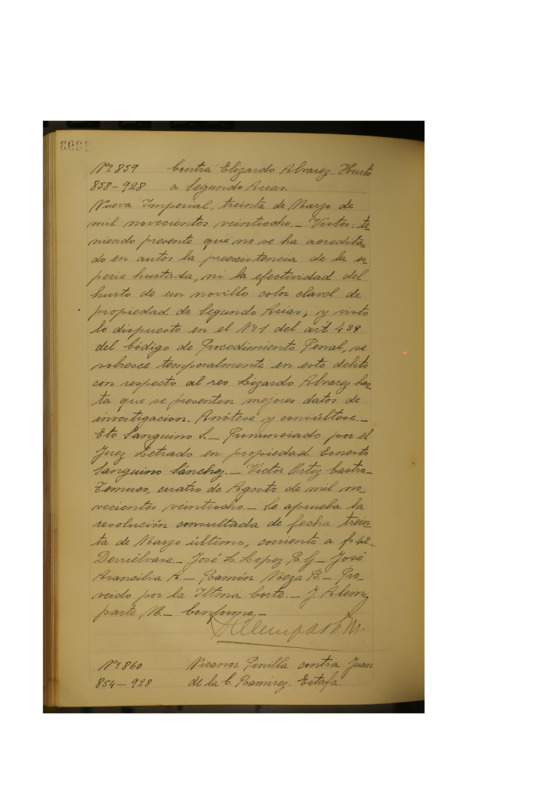 Nº 859 Contra Elizardo Alvarez. Hurto
858-928 a Segundo Arias.
Nueva Imperial, treinta de Marzo de
mil novecientos veintiocho.- Vistos: te
niendo presente que no se ha acredita
do en autos la preexistencia de la es
pecie hurtada, ni la efectividad del
hurto de un novillo color clavel de
propiedad de Segundo Arias, y visto
lo dispuesto en el Nº1 del art 438
del Código de Procedimiento Penal, se
sobresee temporalmente en este delito
con respecto al reo Lizardo Alvarez has
ta que se presenten mejores datos de
investigacion. Anótese y consúltese.-
Eto Sanguino S.- Pronunciado por el
Juez Letrado en propiedad Ernesto
Sanguino Sánchez.- Victor Ortiz Castro-
Temuco, cuatro de Agosto de mil no-
vecientos veintiocho.- Se aprueba la
resolución consultada de fecha trein
ta de Marzo último, corriente a f. 42-
Devuélvase.- José L. Lopez - José
Arancibia A.- Ramón Meza B.- Pro-
veido por la Iltma Corte.- J. Klem
parte M.- Conforme.-
Nº 860 Nicanor Pinilla contra Juan
854-928 de la C. Ramirez. Estafa.